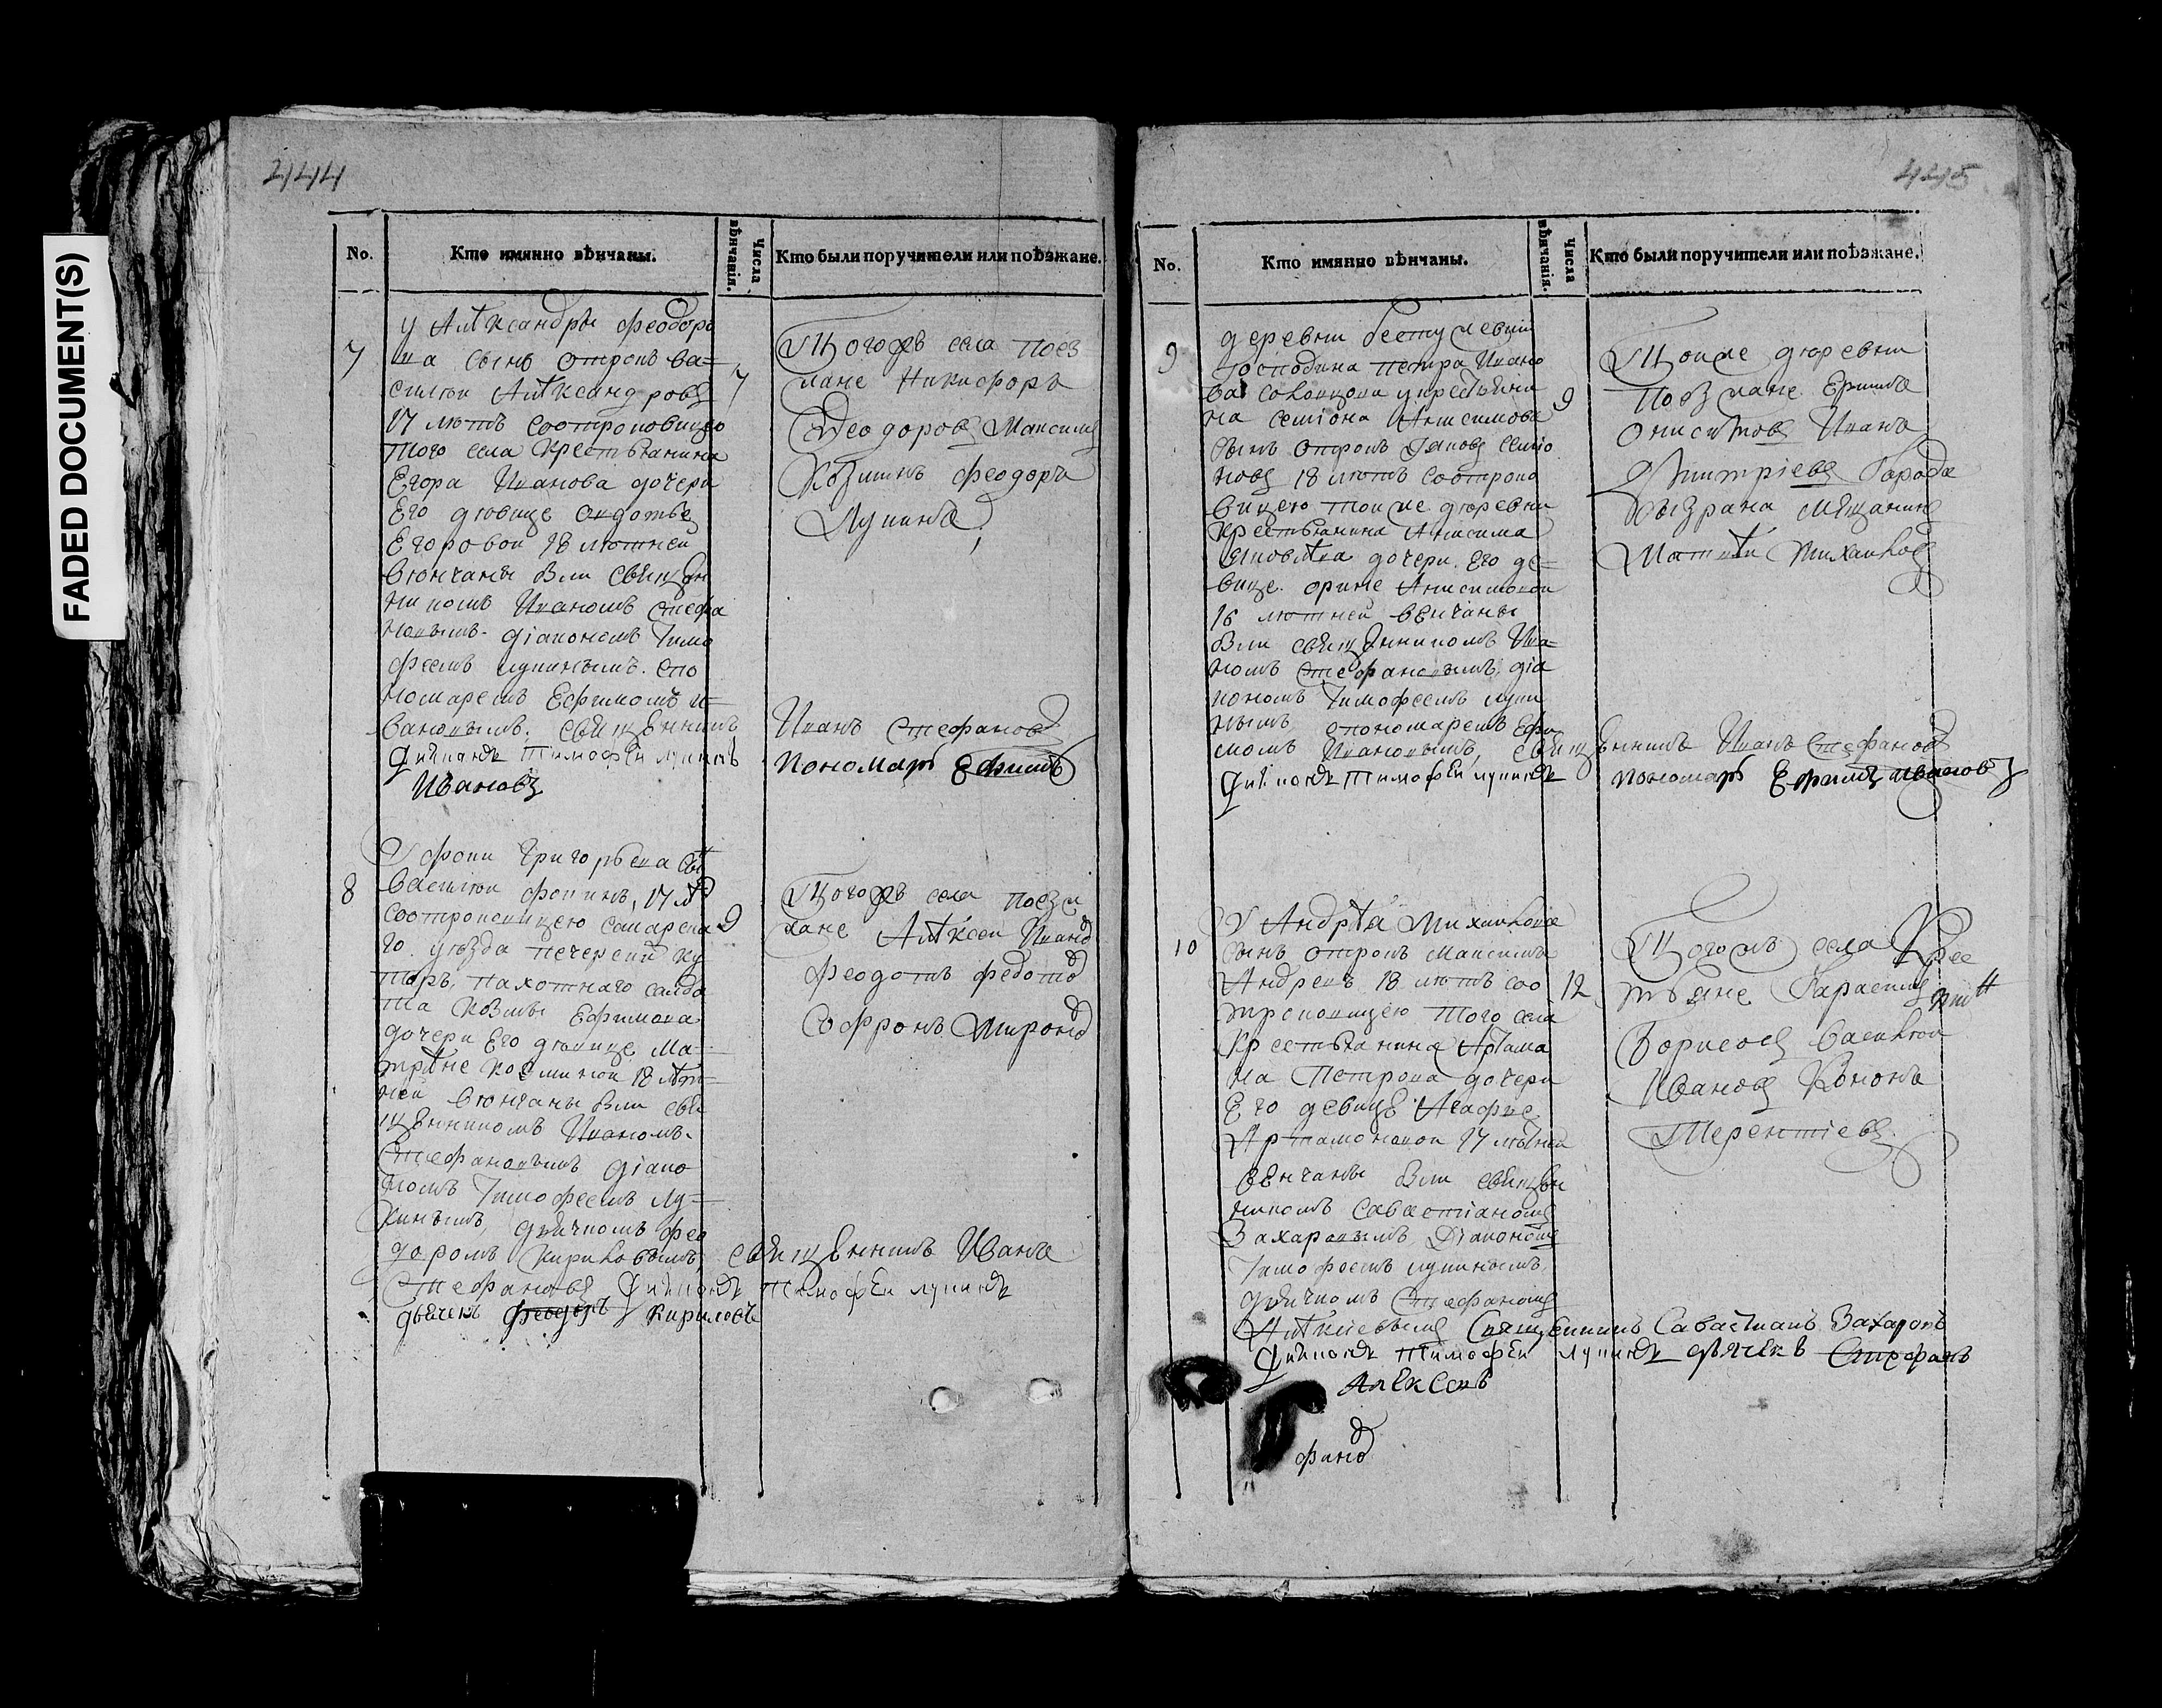 FADED DOCUMENT(S)
444
No.
Кто имянно вѣнчаны.
Числа вѣнчанія.
Кто были поручители или поѣзжане.
7
у Алѣксандры феодоро
ва сынъ отрокъ ва=
силеи Алѣксандровъ
17 лютъ соотроковицею
того села крестьянина
Егора Иванова дочери
Его дювице овдотье
Егоровои 18 лютней
вюнчаны Вли свящѣн
никомъ Иваномъ стефа
новымъ. діакономъ Тимо
феемъ лукинымъ. спо
номаремъ Ефимомъ и=
вановымъ. свящѣнникъ
Диіконъ тимофѣи лукинъ
Ивановъ
7
Тогожъ села поез
жане Никифоръ
Феодоровъ Максимъ
Козминъ феодоръ
Лукинъ
Иванъ Стефановъ
Пономарь Ефимъ
8
У фоки Григорьева сынъ
Василеи фокинъ, 17 лѣ
соотроковицею самарска
го уюзда печерскии ху
торъ, пахотнаго салда
та Козмы Ефимова
дочери Его дювице Ма=
трѣне козминои 18 лѣт=
неи вюнчаны Вли свя
щѣнникомъ Иваномъ
Стефановымъ діако
номъ Тимофеемъ Лу=
кинымъ, дьячкомъ фео
доромъ Кириловымъ, свящѣнникъ Иванъ
Стефановъ Диіконъ тимофѣи лукинъ
дьячекъ феодоръ Кириловъ
9
Тогожъ села поезж
жане Алѣксеи Иванов
феодотъ федотов
Софронъ Миронов
445
No.
Кто имянно вѣнчаны.
Числа вѣнчанія.
Кто были поручители или поѣзжане.
9
деревни бестужевки
господина петра Ивано
ва крестьяни
на семіона Анисимова
сынъ отрокъ Яковъ семіо
новъ 18 лютъ соотроко
вицею тоиже дюревни
крестьянина Анисима
Яковлѣва дочери Его де=
вице орине Анисимовои
16 лютнеи венчаны
Вли свящѣнникомъ Ива=
номъ Стефановымъ діа
кономъ Тимофеемъ луки
нымъ спономаремъ Ефи
момъ Ивановымъ, свящѣнникъ Иванъ Стефановъ
Диіконъ тимофѣи лукинъ пономарь Ефимъ ивановъ
9
Тоиже дюревни
поезжане Ермилъ
онисимовъ Иванъ
Дмитріевъ Города
сызрана мещанинъ
Матвѣи Михаиловъ
10
У Андрѣа Михаилова
сынъ отрокъ Максимъ
Андреевъ 18 лютъ соо
троковицею того села
Крестьянина Артамо
на Петрова дочери
Его девицѣ Агафие
Артамоновои 17 лютнеи
вѣнчаны Вли свящѣн
никомъ Савастіаномъ
Захаровымъ, Діакономъ
Тимофеемъ лукинымъ,
дьячкомъ Стефаномъ
Алѣксеевымъ Священникъ Савастианъ Захаровъ
Диіконъ тимофѣи лукинъ дьячекъ Стефанъ
Алексеевъ
12
Тогожъ села Кре
стьяне Гарасимъ
Борисовъ Василеи
Ивановъ Кононъ
Терентіевъ